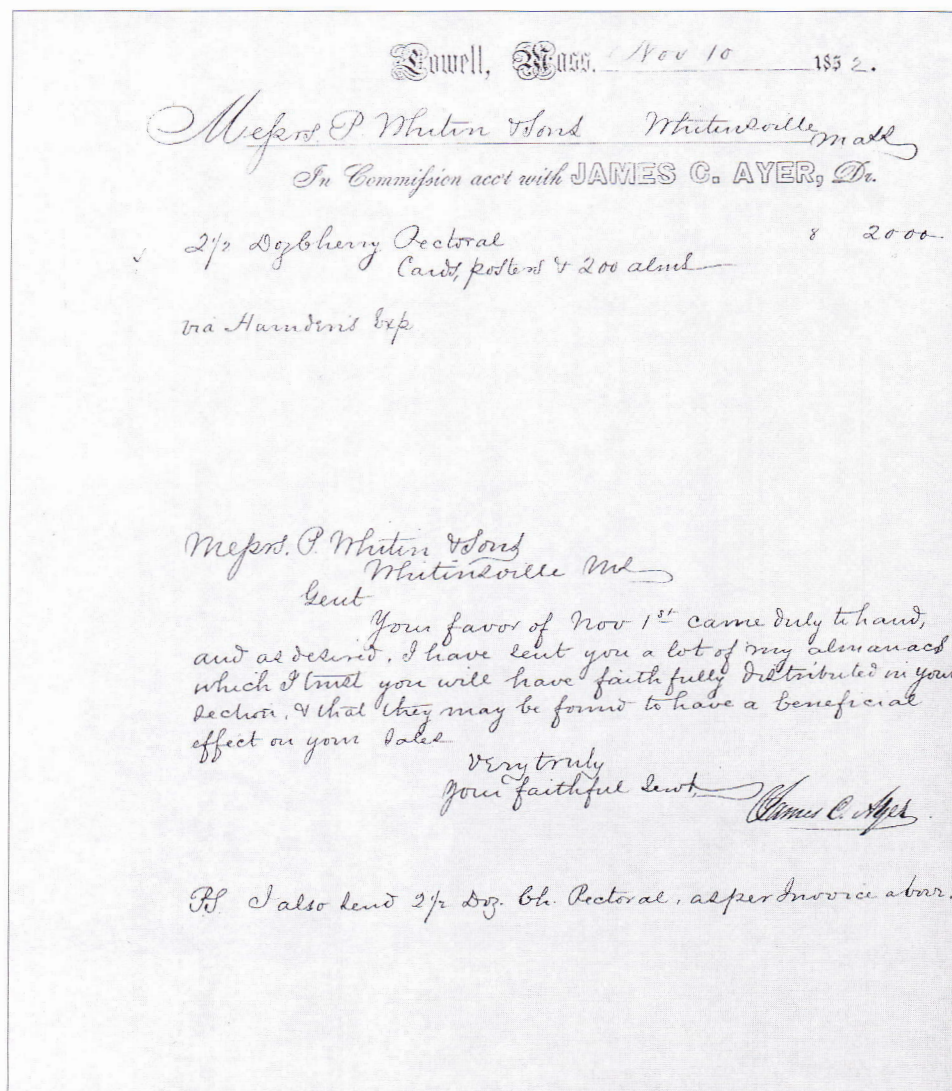 Lowell, Mass. Nov 10 1852.
Messrs. P. Whitin & Sons Whitinsville Mass
In Commission acc't with JAMES C. AYER, Dr.
2½ Doz Cherry Pectoral 8 20 00
Cards, posters & 200 alms
via Harnden's Exp
Messrs. P. Whitin & Sons
Whitinsville Ms
Gent
Your favor of Nov 1st came duly to hand,
and as desired, I have sent you a lot of my almanacs
which I trust you will have faithfully distributed in your
section, & that they may be found to have a beneficial
effect on your sales
Very truly
Your faithful Servt,
James C. Ayer
PS I also send 2½ Doz. Ch. Pectoral, as per Invoice above.